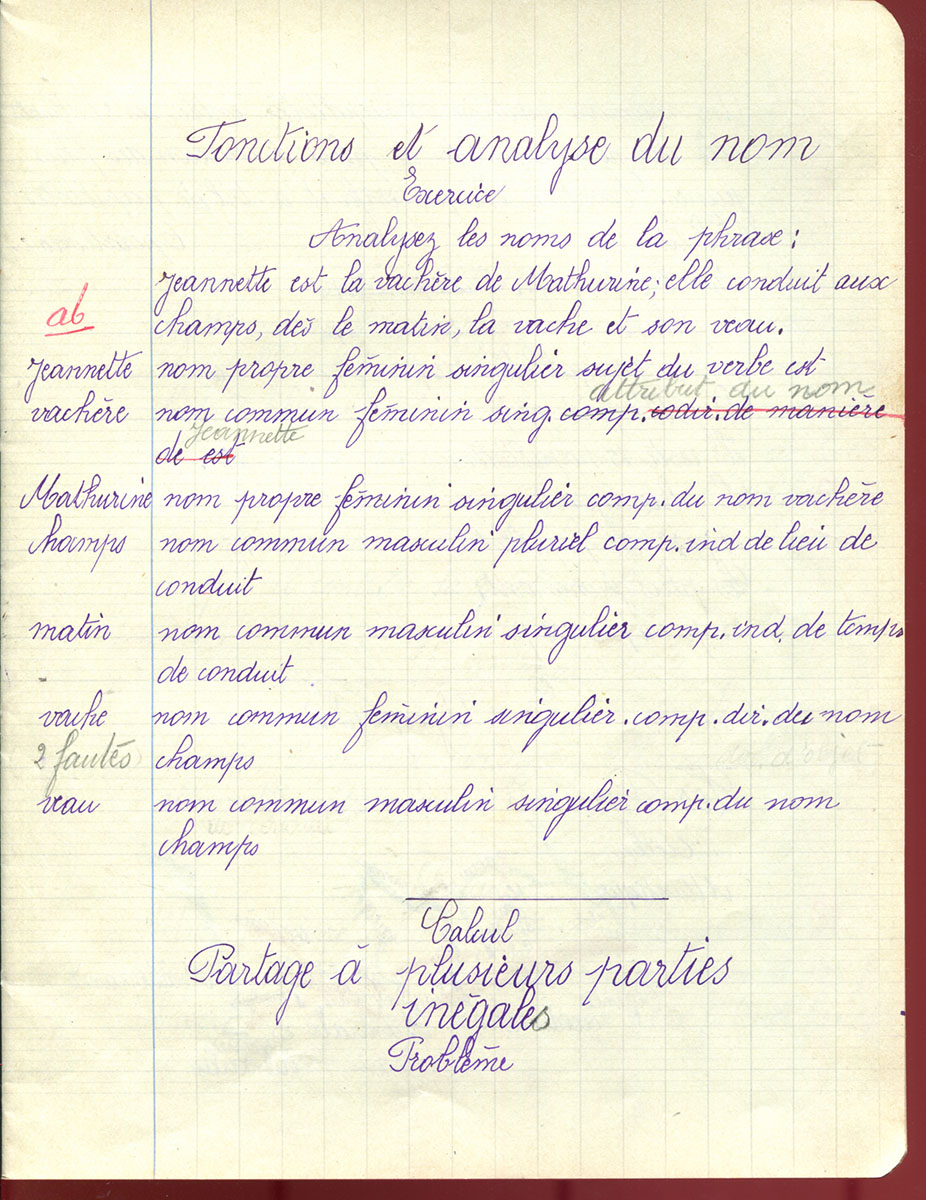 Fonctions et analyse du nom
Exercice
Analysez les noms de la phrase :
Jeannette est la vachère de Mathurine; elle conduit aux
ab
champs, dès le matin, la vache et son veau.
Jeannette nom propre féminin singulier sujet du verbe est
attribut du nom
vachère nom commun féminin sing. comp. codir. de manière
Jeannette
de est
Mathurine nom propre féminin singulier comp. du nom vachère
champs nom commun masculin pluriel comp. ind de lieu de
conduit
matin nom commun masculin singulier comp. ind. de temps
de conduit
vache nom commun féminin singulier. comp. dir. du nom
2 fautes champs
veau nom commun masculin singulier comp. du nom
champs
Calcul
Partage à plusieurs parties
inégales
Problème